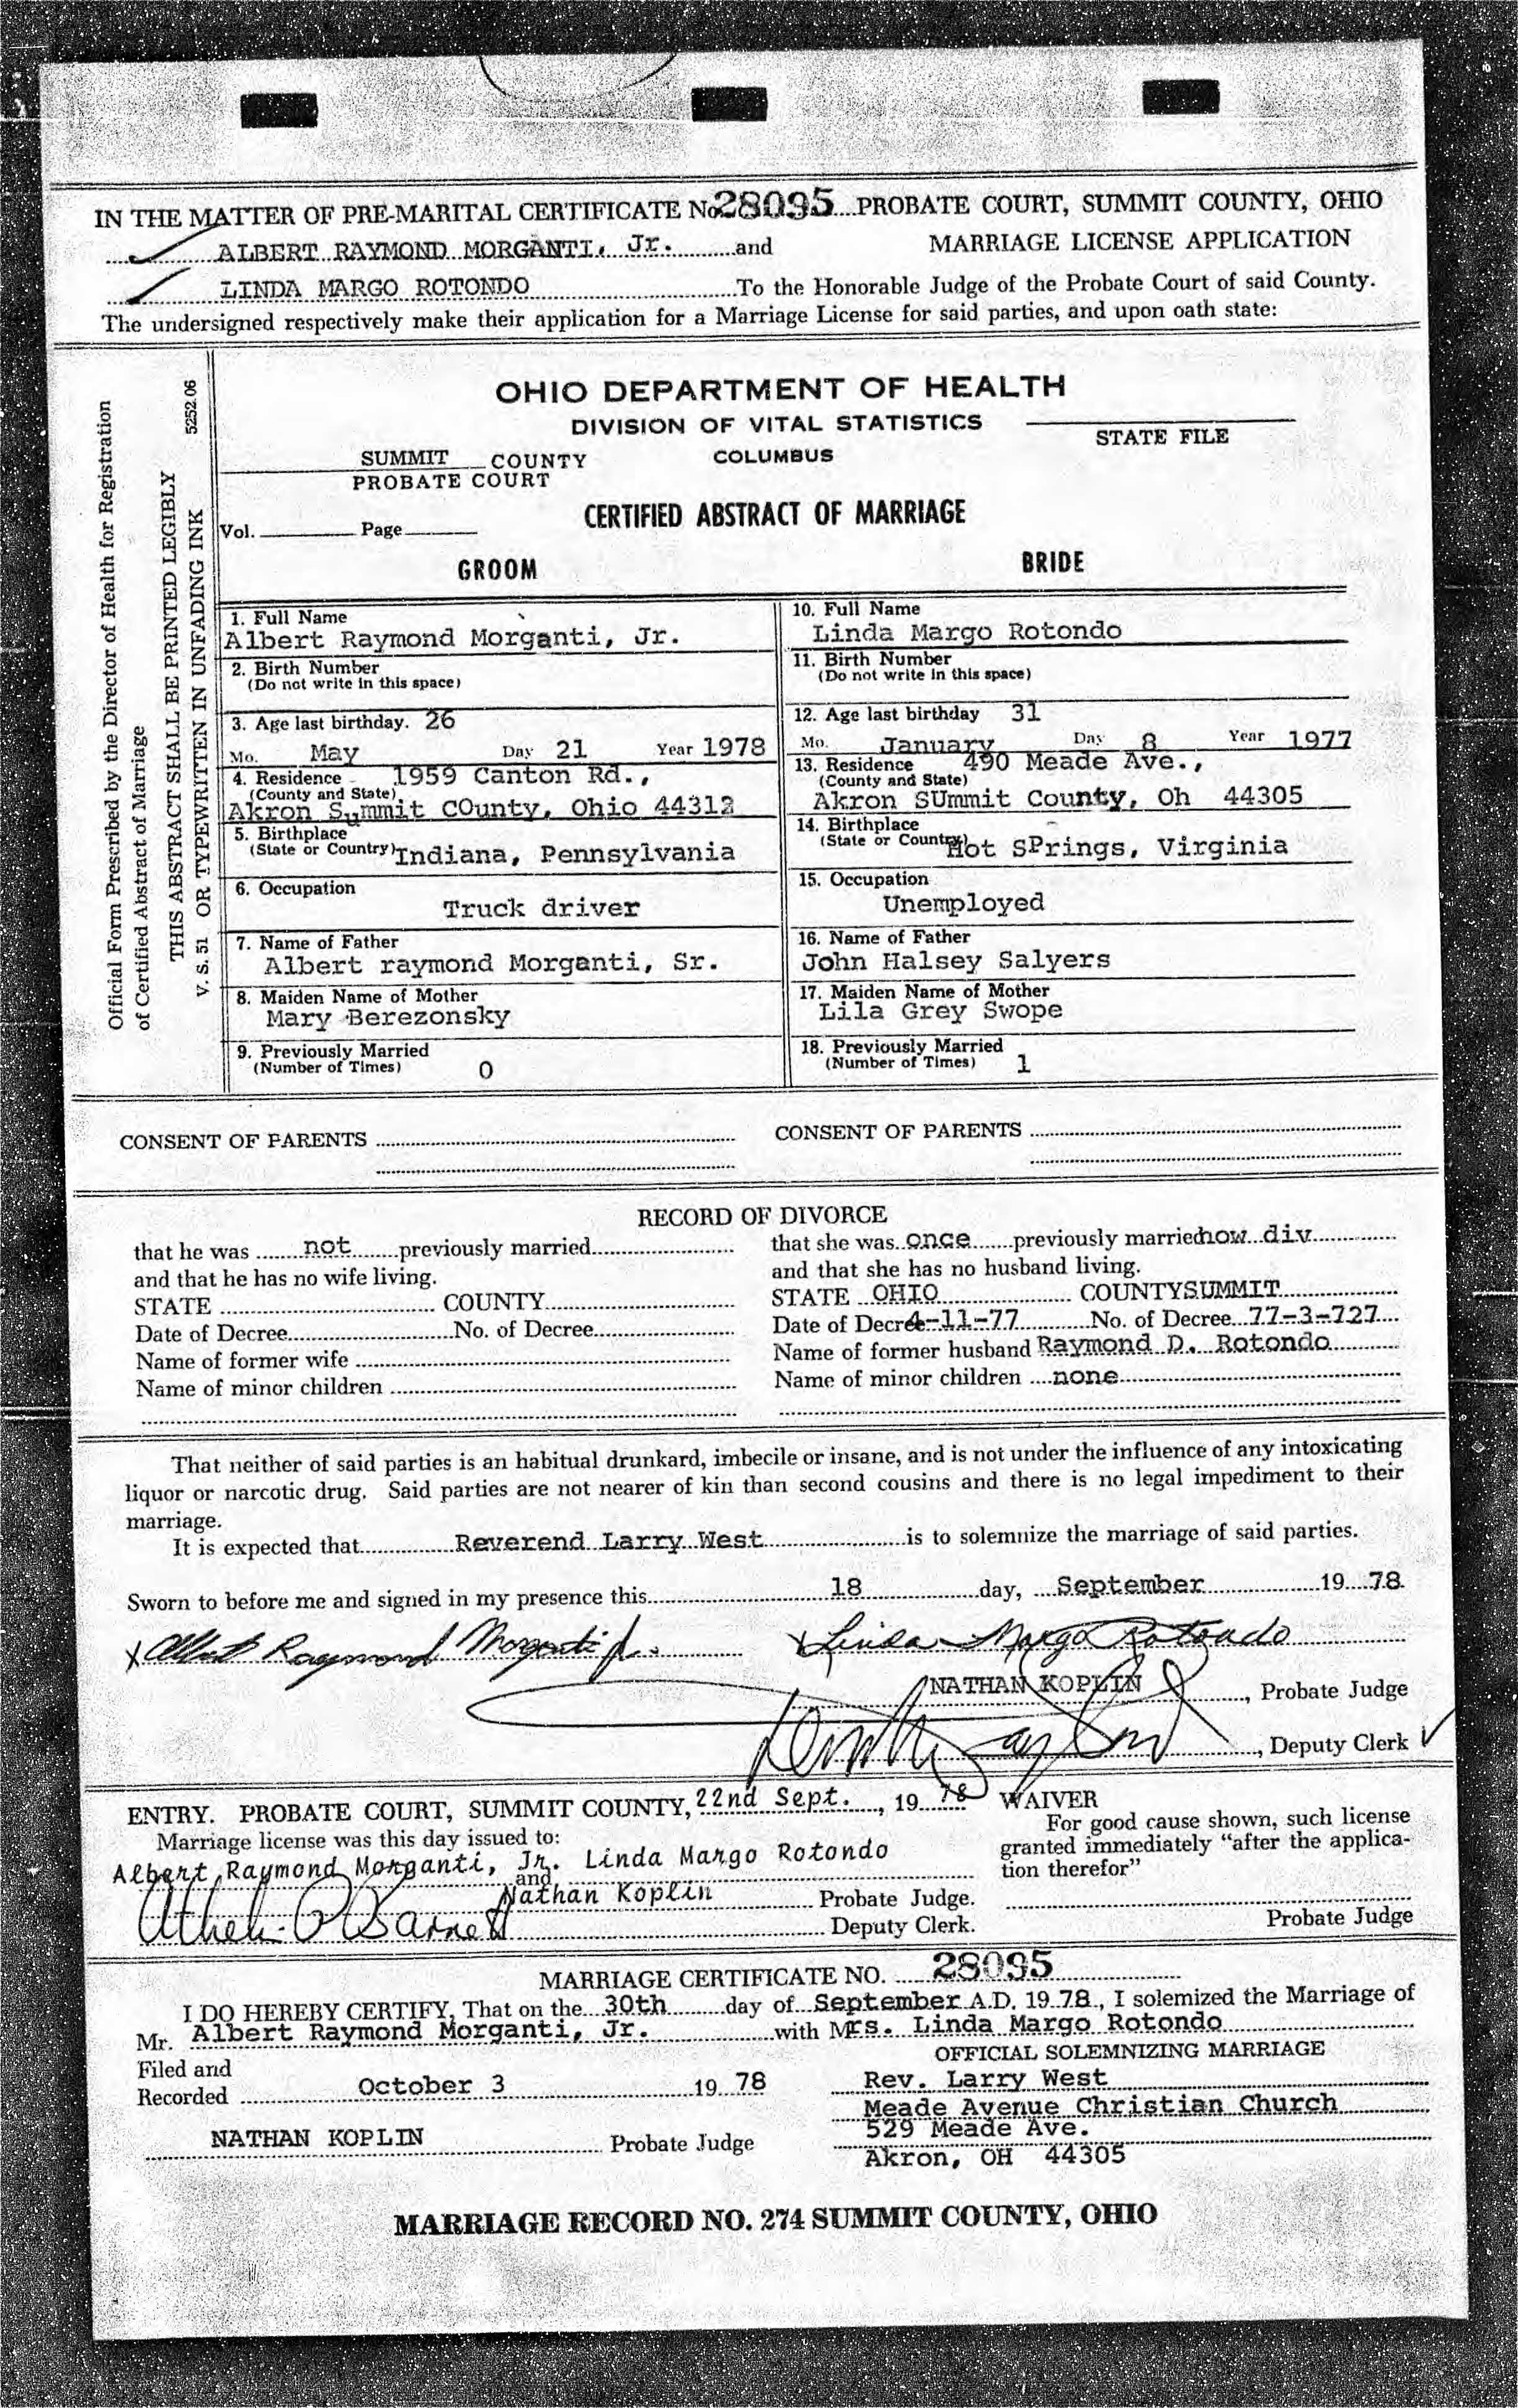 IN THE MATTER OF PRE-MARITAL CERTIFICATE No 28095 PROBATE COURT, SUMMIT COUNTY, OHIO
ALBERT RAYMOND MORGANTI, Jr. and MARRIAGE LICENSE APPLICATION
LINDA MARGO ROTONDO To the Honorable Judge of the Probate Court of said County.
The undersigned respectively make their application for a Marriage License for said parties, and upon oath state:
Official Form Prescribed by the Director of Health for Registration
of Certified Abstract of Marriage
THIS ABSTRACT SHALL BE PRINTED LEGIBLY
V. S. 51 OR TYPEWRITTEN IN UNFADING INK 5252.06
OHIO DEPARTMENT OF HEALTH
DIVISION OF VITAL STATISTICS
STATE FILE
SUMMIT COUNTY COLUMBUS
PROBATE COURT
CERTIFIED ABSTRACT OF MARRIAGE
Vol. Page
GROOM
BRIDE
1. Full Name
Albert Raymond Morganti, Jr.
2. Birth Number
(Do not write in this space)
3. Age last birthday. 26
Mo. May Day 21 Year 1978
4. Residence 1959 Canton Rd.,
(County and State)
Akron Summit COunty, Ohio 44312
5. Birthplace
(State or Country) Indiana, Pennsylvania
6. Occupation
Truck driver
7. Name of Father
Albert raymond Morganti, Sr.
8. Maiden Name of Mother
Mary Berezonsky
9. Previously Married
(Number of Times) 0
10. Full Name
Linda Margo Rotondo
11. Birth Number
(Do not write in this space)
12. Age last birthday 31
Mo. January Day 8 Year 1977
13. Residence 490 Meade Ave.,
(County and State)
Akron SUmmit County, Oh 44305
14. Birthplace
(State or Country) Hot SPrings, Virginia
15. Occupation
Unemployed
16. Name of Father
John Halsey Salyers
17. Maiden Name of Mother
Lila Grey Swope
18. Previously Married
(Number of Times) 1
CONSENT OF PARENTS CONSENT OF PARENTS
RECORD OF DIVORCE
that he was not previously married
and that he has no wife living.
STATE COUNTY
Date of Decree No. of Decree
Name of former wife
Name of minor children
that she was once previously married now div
and that she has no husband living.
STATE OHIO COUNTY SUMMIT
Date of Decree 4-11-77 No. of Decree 77-3-727
Name of former husband Raymond D. Rotondo
Name of minor children none
That neither of said parties is an habitual drunkard, imbecile or insane, and is not under the influence of any intoxicating
liquor or narcotic drug. Said parties are not nearer of kin than second cousins and there is no legal impediment to their
marriage.
It is expected that Reverend Larry West is to solemnize the marriage of said parties.
Sworn to before me and signed in my presence this 18 day, September 19 78
x Albert Raymond Morganti Jr. x Linda Margo Rotondo
NATHAN KOPLIN, Probate Judge
, Deputy Clerk
ENTRY. PROBATE COURT, SUMMIT COUNTY, 22nd Sept., 19 78
Marriage license was this day issued to:
Albert Raymond Morganti, Jr. and Linda Margo Rotondo
Nathan Koplin Probate Judge.
Deputy Clerk.
WAIVER
For good cause shown, such license
granted immediately "after the applica-
tion therefor"
Probate Judge
MARRIAGE CERTIFICATE NO. 28095
I DO HEREBY CERTIFY, That on the 30th day of September A.D. 19 78, I solemized the Marriage of
Mr. Albert Raymond Morganti, Jr. with Mrs. Linda Margo Rotondo
Filed and
Recorded October 3 19 78
NATHAN KOPLIN Probate Judge
OFFICIAL SOLEMNIZING MARRIAGE
Rev. Larry West
Meade Avenue Christian Church
529 Meade Ave.
Akron, OH 44305
MARRIAGE RECORD NO. 274 SUMMIT COUNTY, OHIO